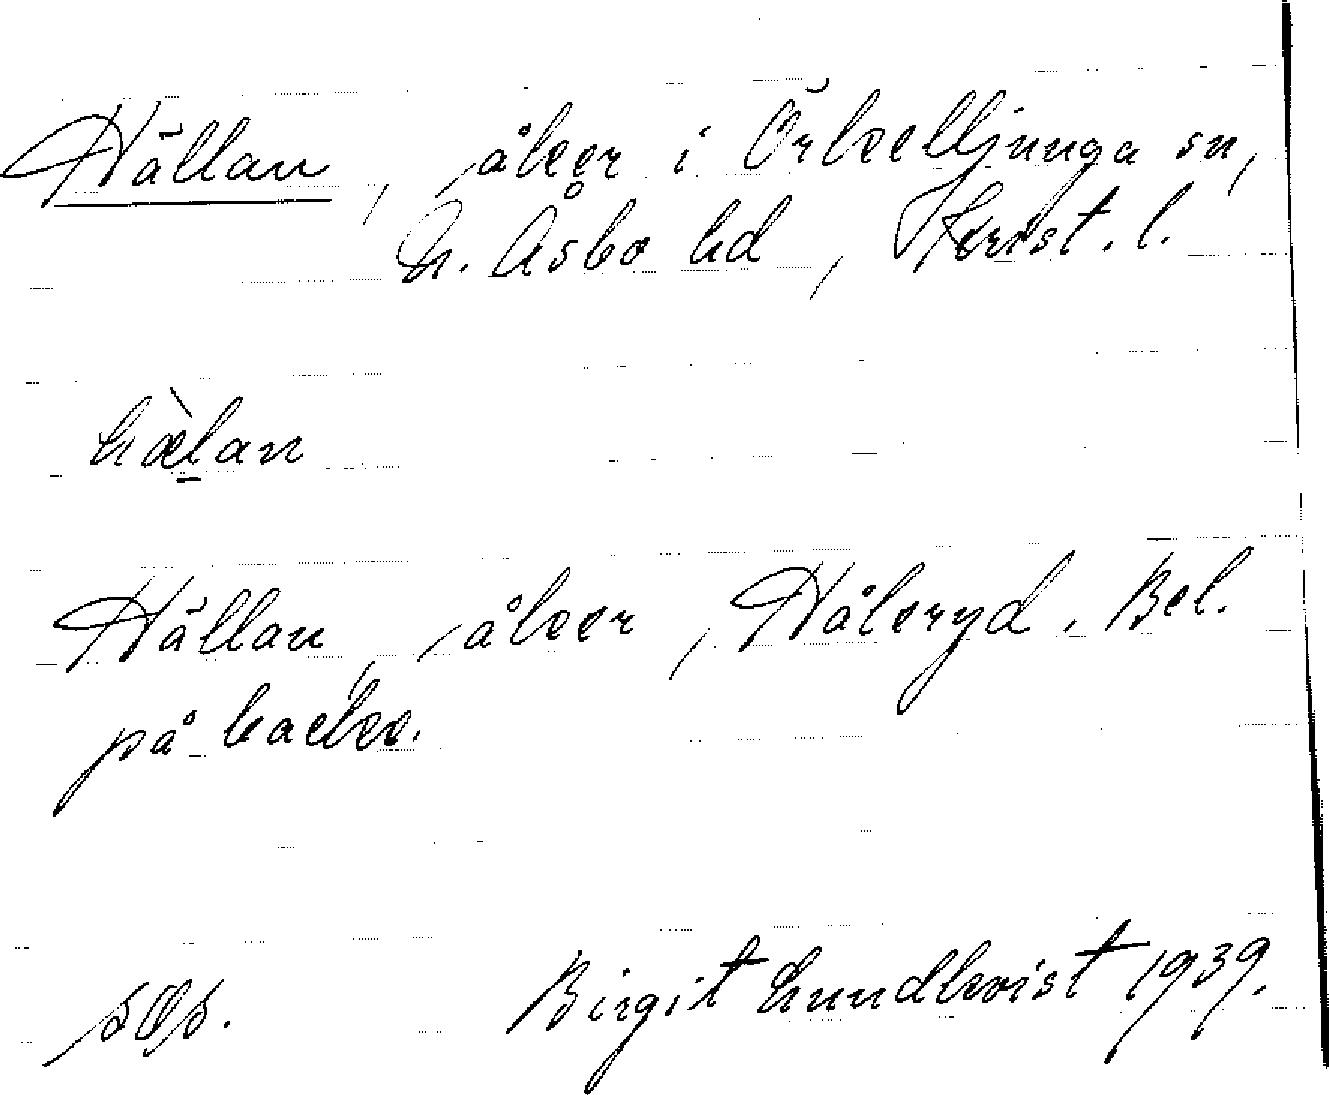 Hällan, åker i Örkelljunga sn,
N. Åsbo hd, Krist. l.
hæ̀lan
Hällan, åker, Håkryd. Bel.
på backe.
Birgit Lundkvist 1939.